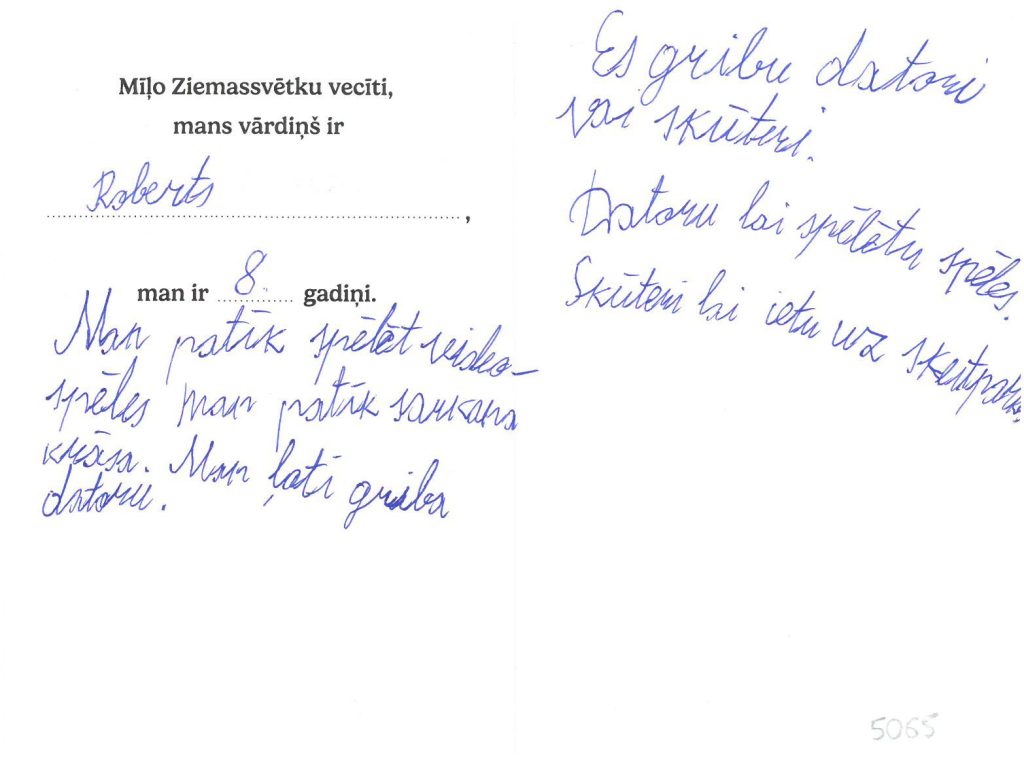 Mīļo Ziemassvētku vecīti,
mans vārdiņš ir
Roberts,
man ir 8 gadiņi.
Man patīk spēlēt video-
spēles man patīk sarkana
krāsa. Man ļati griba
datoru.
Es gribu datori
vai skūteri.
Datoru lai spēlētu spēles.
Skūteri lai ietu uz skeitparku.
5065